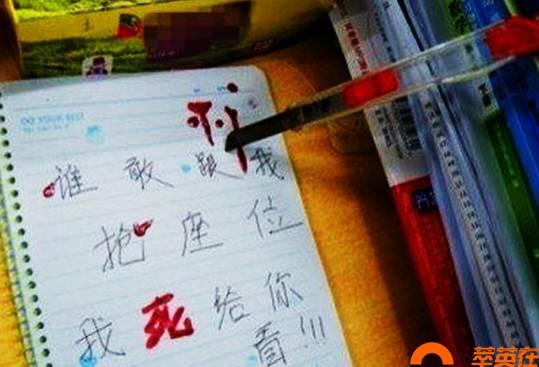 DO YOUR BEST
谁敢跟我
抢座位
我死给你
看!!!
萃英在